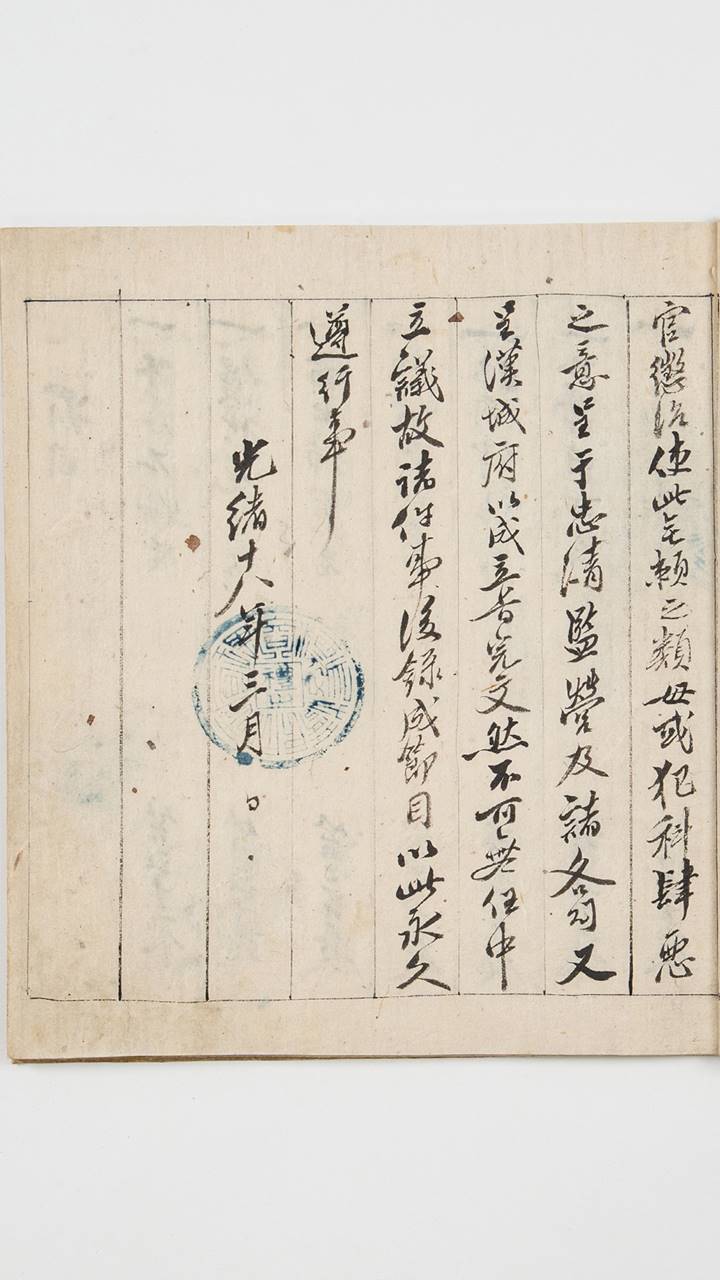 官懲治使此無賴之類毋或犯科肆惡
之意呈于忠淸監營及諸各司又
呈漢城府以成立旨完文然不可無任中
立議故諸件事後錄成節目以此永久
遵行事
光緖十八年三月 日